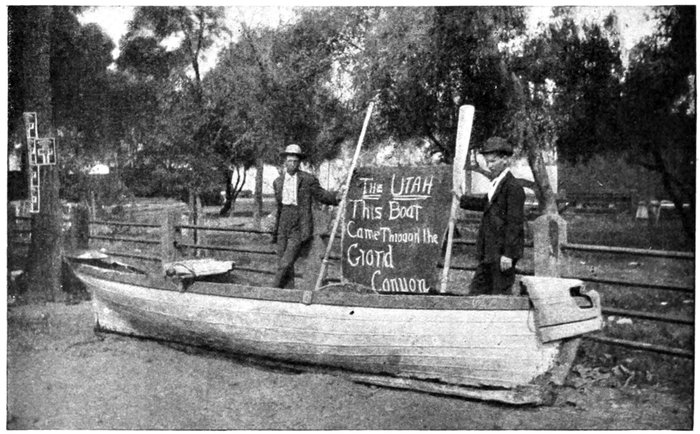 The UTAH
This Boat
Came Through the
Grand
Canyon